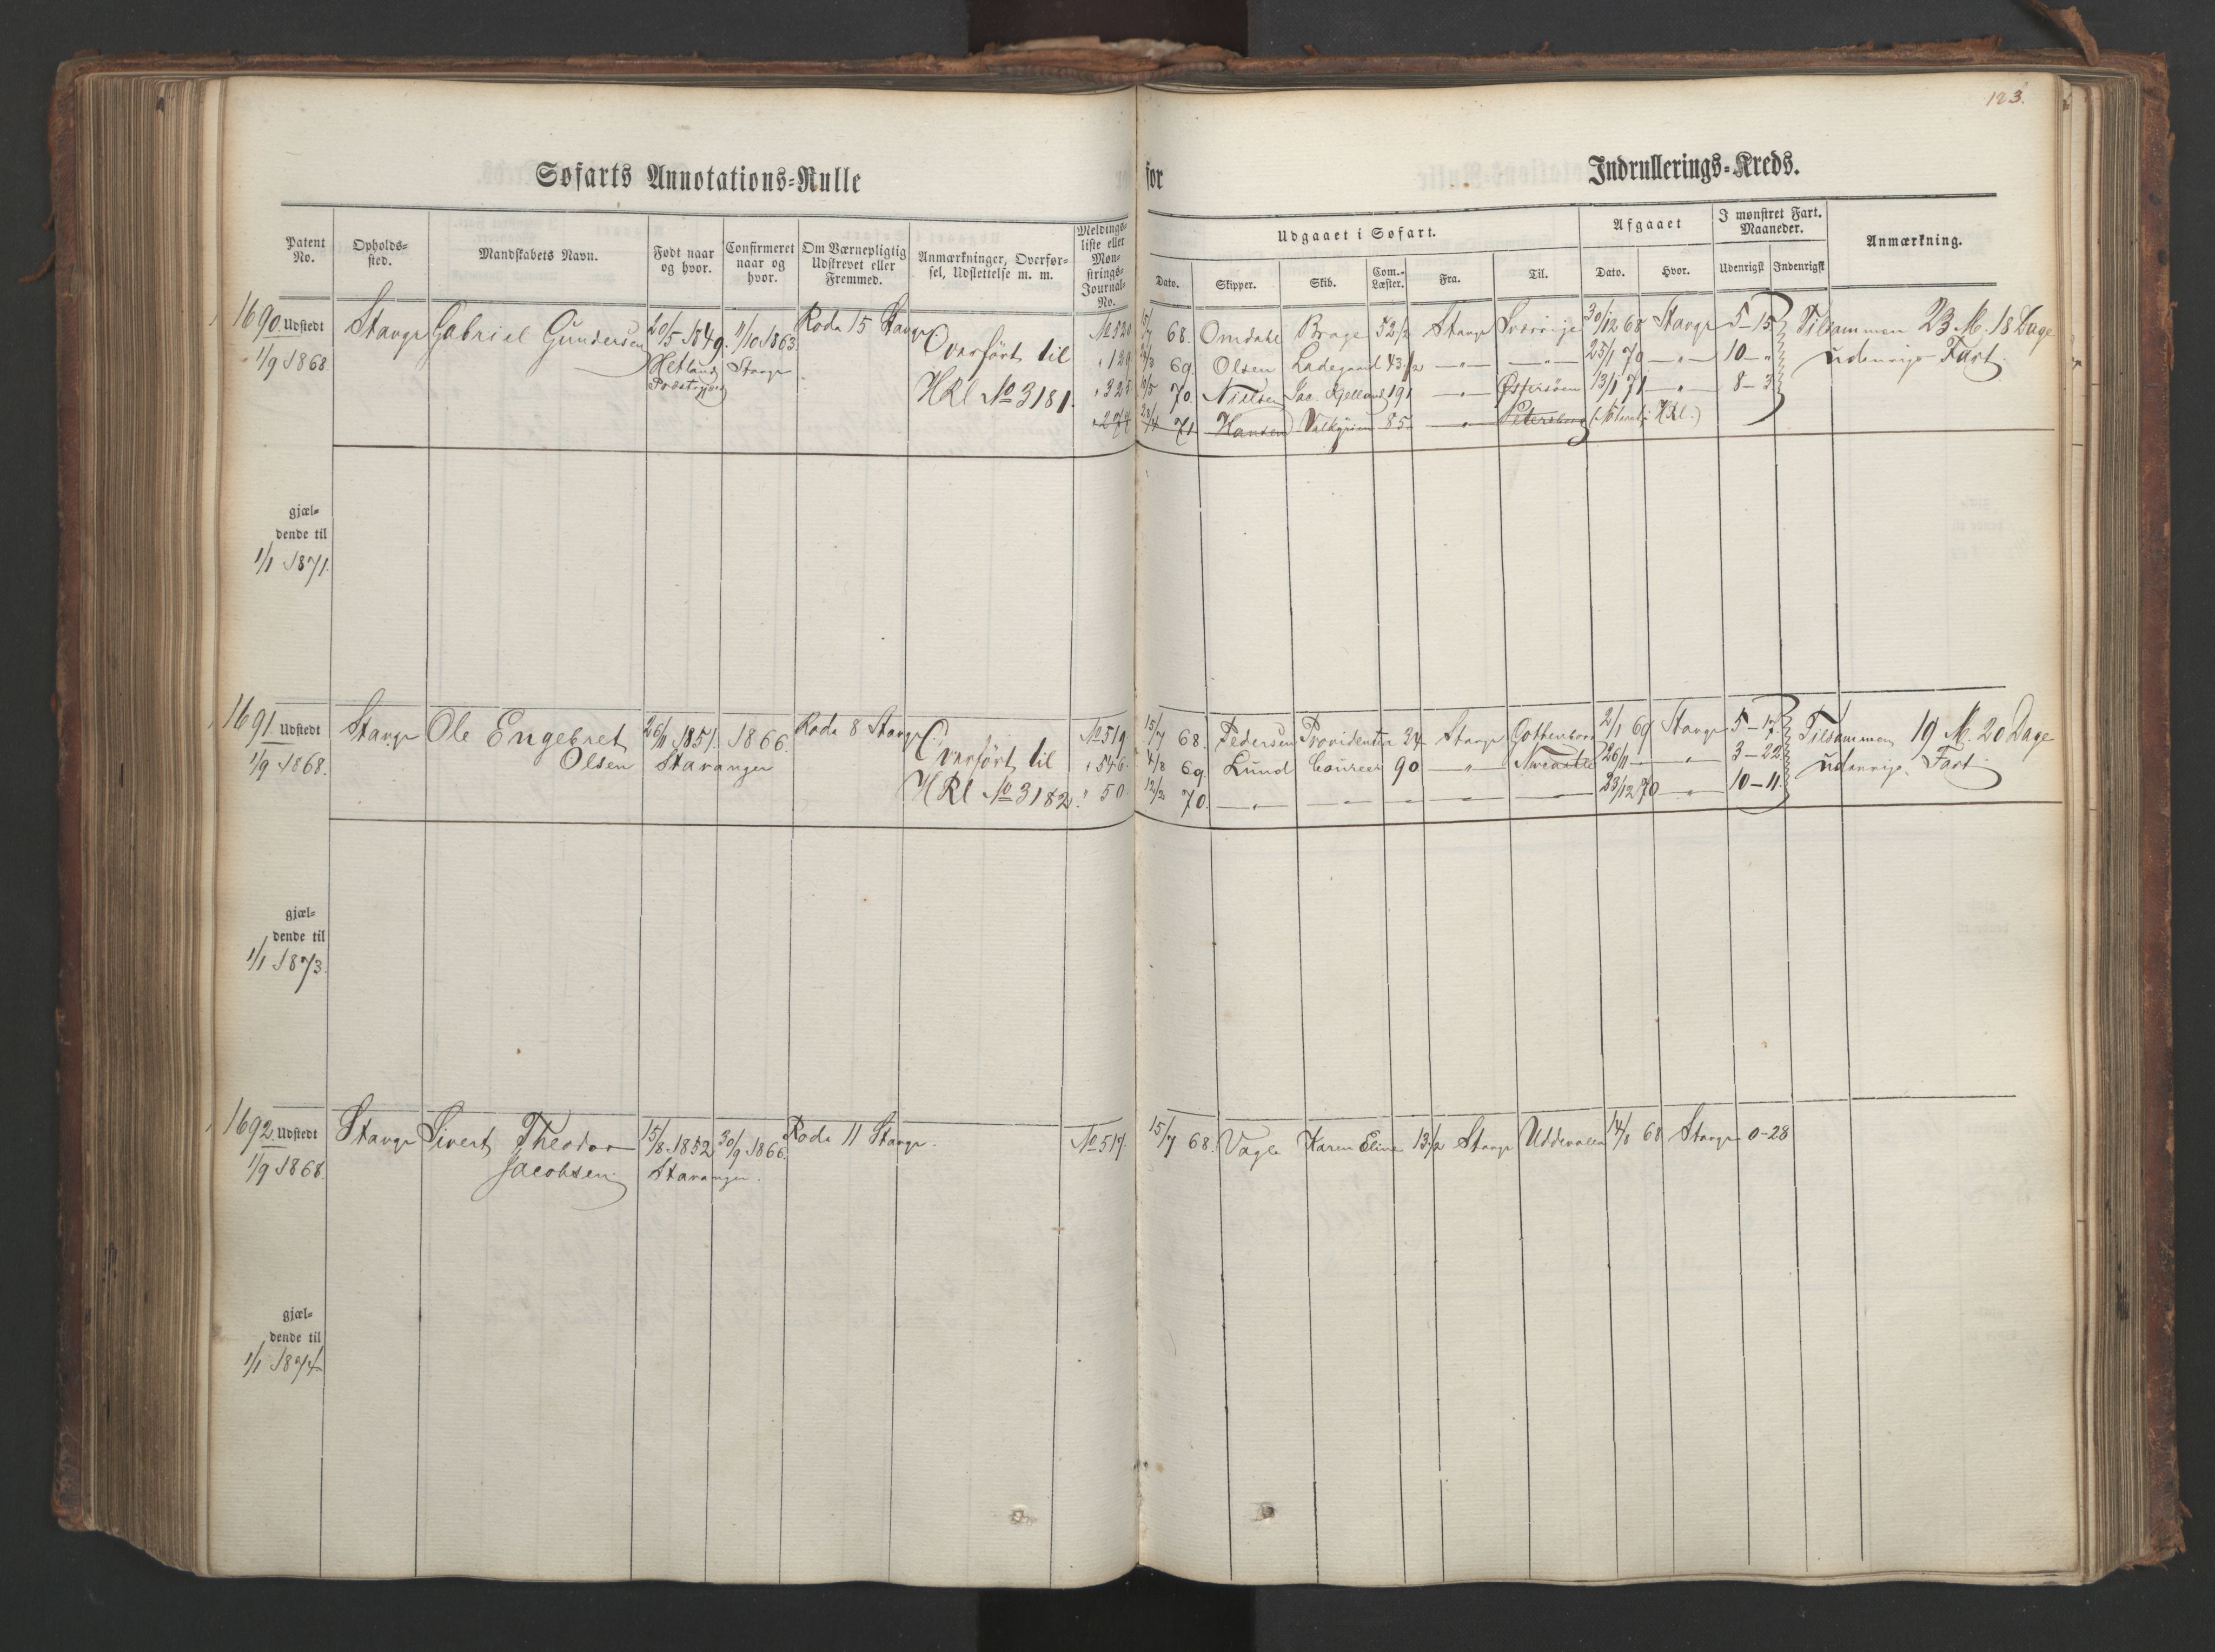 123.
Søfarts Annotations-Rulle for Indrullerings-Kreds.
Patent No.
Opholds-sted.
Mandskabets Navn.
Født naar og hvor.
Confirmeret naar og hvor.
Om Værnepligtig Udskrevet eller Fremmed.
Anmærkninger, Overførsel, Udslettelse m. m.
Meldings-liste eller Mønstrings-Journal-No.
Udgaaet i Søfart.
Afgaaet
I mønstret Fart. Maaneder.
Anmærkning.
Dato. Skipper. Skib. Com.-Læster. Fra. Til. Dato. Hvor. Udenrigsk Indenrigsk
1690 Udstedt Stavgr Gabriel Gundersen 20/5 1849. 11/10 1863. Rode 15 Stavgr Overført til No 520 15/7 68. Omdahl Brage 52 1/2 Stavgr Sverrige 30/12 68 Stavgr 5-15 Tilsammen 23 M. 18 Dage
1/9 1868 Hetland Stavgr HRl No 3181. " 129 69. Olsen Ladegaard 43 1/2 —"— —"— 25/1 70 —"— 10-" udenrigs Fart.
Præstegjeld " 325 10/5 70. Nielsen Jac. Kjelland 191 —"— Østersøen 13/1 71 —"— 8-3
" 274 71. Hansen Valkyrien 85 —"— Petersburg HRl.)
gjæl-
dende til
1/1 1871.
1691 Udstedt Stavgr Ole Engebret 26/11 1851. 1866. Rode 8 Stavgr Overført til No 519 15/7 68. Pedersen Providentia 34 Stavgr Gottenborg 2/1 69 Stavgr 5-17 Tilsammen 19 M. 20 Dage
1/9 1868. Olsen Stavanger HRl No 3182. " 546 4/8 69. Lund Coureer 90 —"— Newcastle 26/11 — —"— 3-22 udenrigs Fart
" 50 12/2 70. —"— —"— — — — 23/12 70 —"— 10-11.
gjæl-
dende til
1/1 1873.
1692 Udstedt Stavgr Sivert Theodor 15/8 1852 30/9 1866. Rode 11 Stavgr. No 517 15/7 68. Vagle Karen Eline 13 1/2 Stavgr Uddevalla 14/8 68 Stavgr 0-28
1/9 1868. Jacobsen Stavanger.
gjæl-
dende til
1/1 1874